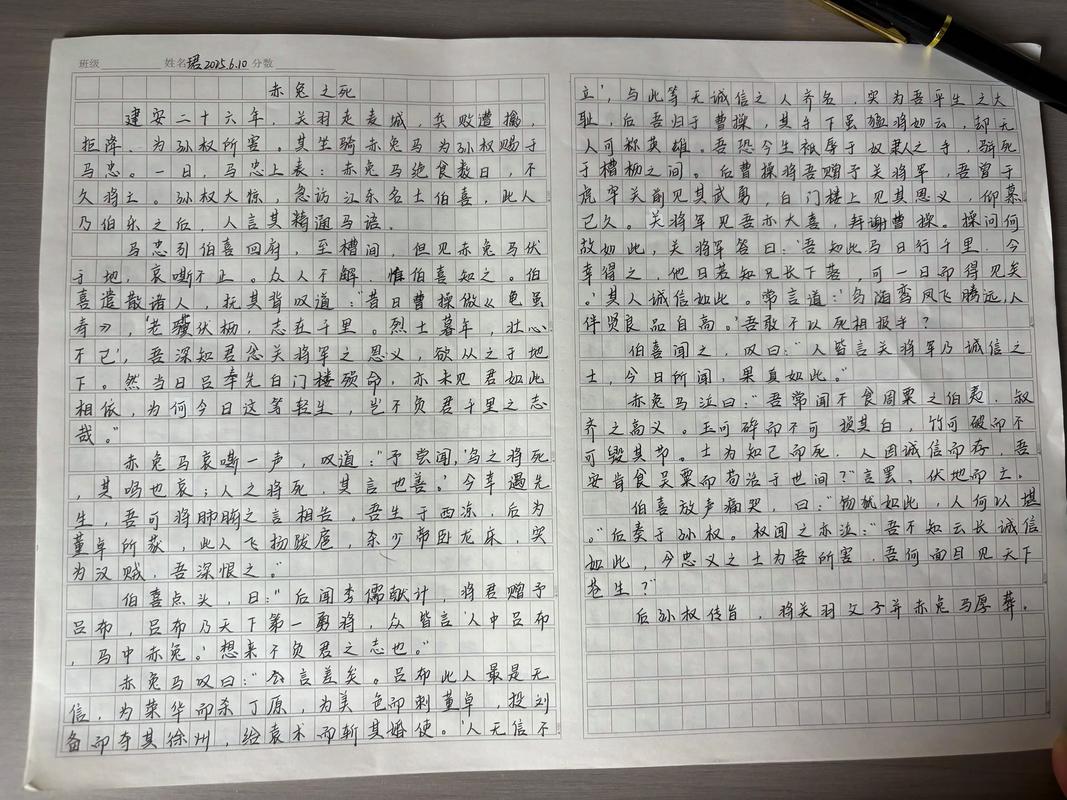 班级 姓名珺2025.6.10 分数
赤兔之死
建安二十六年，关羽走麦城，兵败遭擒，
拒降，为孙权所害。其坐骑赤兔马为孙权赐于
马忠。一日，马忠上表：赤兔马绝食数日，不
久将亡。孙权大惊，急访江东名士伯喜，此人
乃伯乐之后，人言其精通马语。
马忠引伯喜回府，至槽间，但见赤兔马伏
于地，哀嘶不止。众人不解，惟伯喜知之。伯
喜遣散诸人，抚其背叹道：“昔日曹操做《龟虽
寿》，‘老骥伏枥，志在千里。烈士暮年，壮心
不已’，吾深知君念关将军之恩义，欲从之于地
下。然当日吕奉先白门楼殒命，亦未见君如此
相依，为何今日这等轻生，岂不负君千里之志
哉。”
赤兔马哀嘶一声，叹道：“予尝闻，‘鸟之将死
，其鸣也哀；人之将死，其言也善。’今幸遇先
生，吾可将肺腑之言相告。吾生于西凉，后为
董卓所获，此人飞扬跋扈，杀少帝卧龙床，实
为汉贼，吾深恨之。”
伯喜点头，曰：“后闻李儒献计，将君赠予
吕布，吕布乃天下第一勇将，众皆言‘人中吕布
，马中赤兔。’想来不负君之志也。”
赤兔马叹曰：“公言差矣。吕布此人最是无
信，为荣华而杀丁原，为美色而刺董卓，投刘
备而夺其徐州，结袁术而斩其婚使。‘人无信不
立’，与此等无诚信之人齐名，实为吾平生之大
耻，后吾归于曹操，其手下虽猛将如云，却无
人可称英雄。吾恐今生秖辱于奴隶人之手，骈死
于槽枥之间。后曹操将吾赠予关将军，吾曾于
虎牢关前见其武勇，白门楼上见其恩义，仰慕
已久。关将军见吾亦大喜，拜谢曹操。操问何
故如此，关将军答曰：‘吾知此马日行千里，今
幸得之，他日若知兄长下落，可一日而得见矣
。’其人诚信如此。常言道：‘鸟随鸾凤飞腾远，人
伴贤良品自高。’吾敢不以死相报乎？
伯喜闻之，叹曰：“人皆言关将军乃诚信之
士，今日所闻，果真如此。”
赤兔马泣曰：“吾常闻不食周粟之伯夷、叔
齐之高义。玉可碎而不可损其白，竹可破而不
可毁其节。士为知己而死，人因诚信而存，吾
安肯食吴粟而苟活于世间？”言罢，伏地而亡。
伯喜放声痛哭，曰：“物犹如此，人何以堪
。”后奏于孙权。权闻之亦泣：“吾不知云长诚信
如此，今忠义之士为吾所害，吾何面目见天下
苍生？”
后孙权传旨，将关羽父子并赤兔马厚葬。